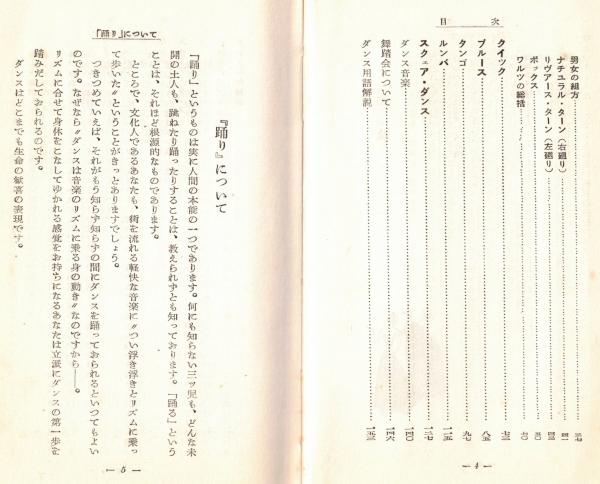 目次
男女の組方
ナチュラル・ターン（右廻り）
リヴアース・ターン（左廻り）
ボックス
ワルツの総括
クイック
ブルース
タンゴ
ルンバ
スクェア・ダンス
ダンス音楽
舞踏会について
ダンス用語解説
— 4 —
「踊り」について
『踊り』について
『踊り』というものは実に人間の本能の一つであります。何にも知らない三ツ児も、どんな未
開の土人も、跳ねたり踊ったりすることは、教えられずとも知っております。『踊る』という
ことは、それほど根源的なものであります。
ところで、文化人であるあなたも、街を流れる軽快な音楽に〝つい浮き浮きとリズムに乗っ
て歩いた〟ということがきっとありますでしょう。
つきつめていえば、それがもう知らず知らずの間にダンスを踊っておられるといつてもよい
のです。なぜなら〝ダンスは音楽のリズムに乗る身の動き〟なのですから——。
リズムに合せて身体をこなしてゆかれる感覚をお持ちになるあなたは立派にダンスの第一歩を
踏みだしておられるのです。
ダンスはどこまでも生命の歓喜の表現です。
— 5 —